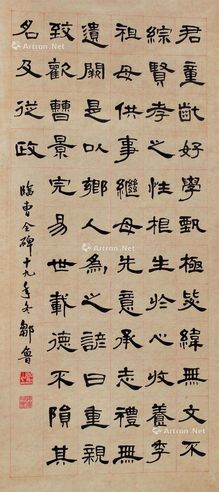 君童齔好學甄極毖緯無文不
綜賢孝之性根生於心收養季
祖母供事繼母先意承志禮無
遺闕是以鄉人為之諺曰重親
致歡曹景完易世載德不隕其
名及從政
臨曹全碑十九年冬鄒魯
Artron.Net